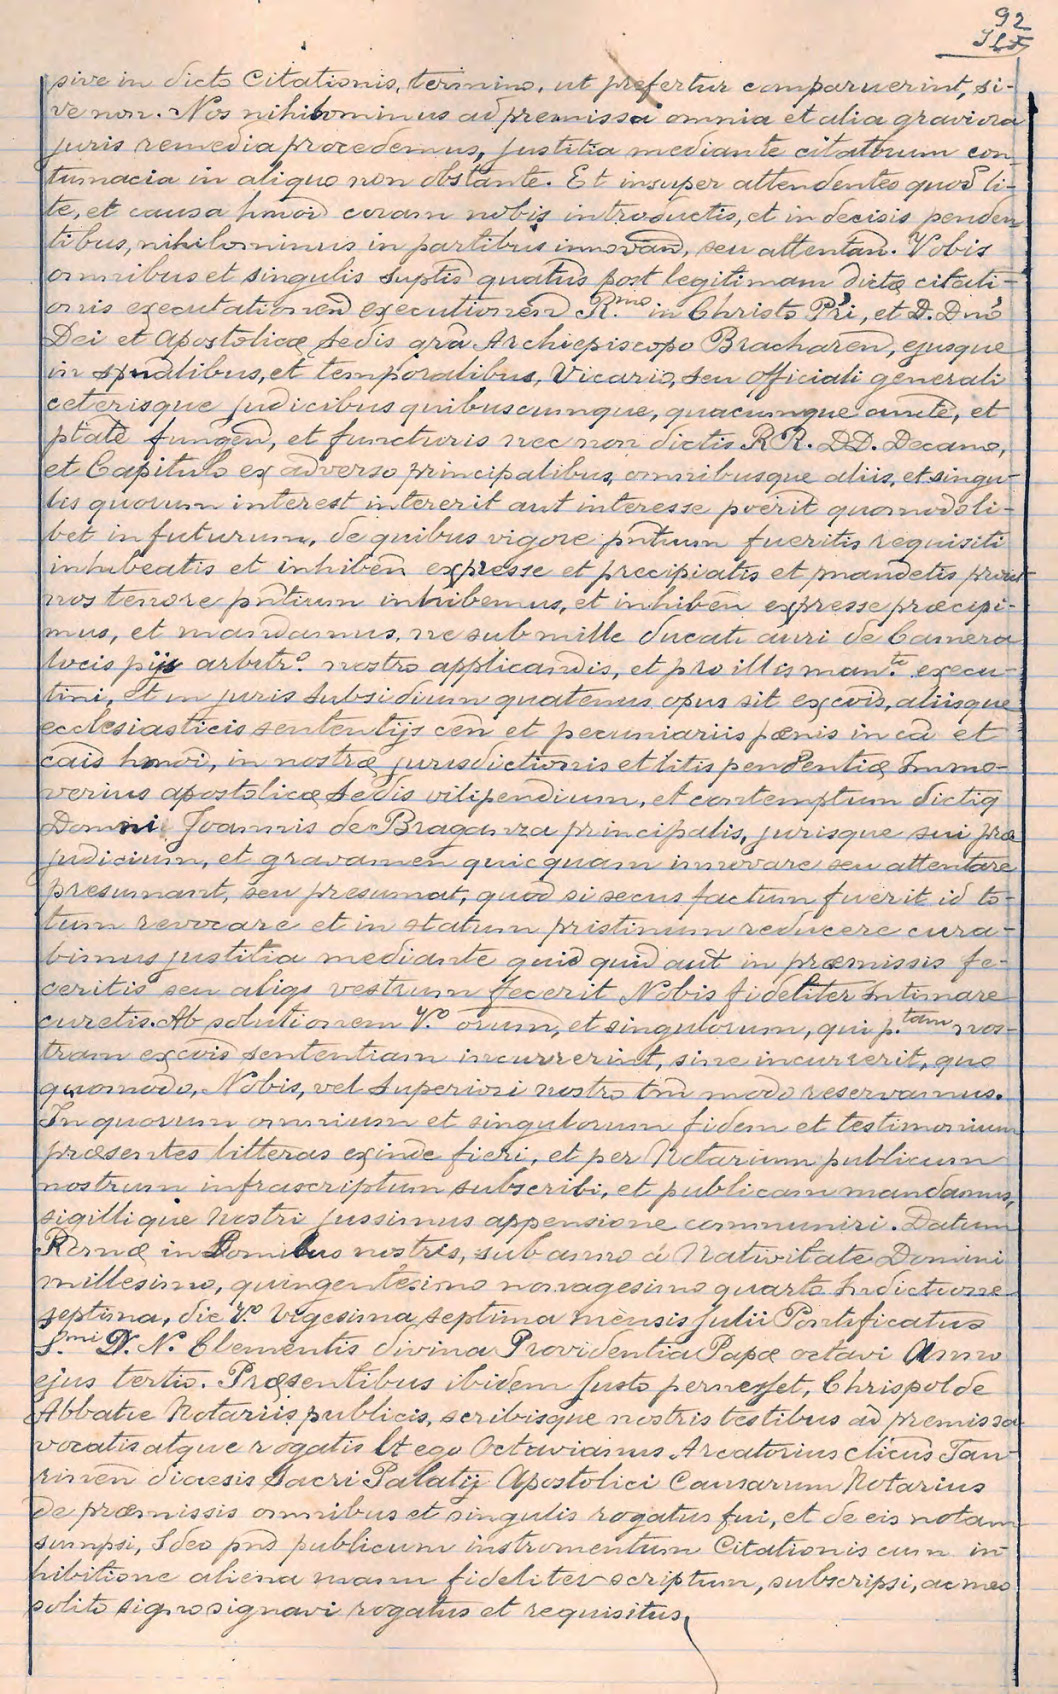 92
sive in dicto Citationis, termino, ut prefertur comparuerint, si-
ve non. Nos nihilominus ad premissa omnia et alia graviora
juris remedia procedemus, justitia mediante citatorum con-
tumacia in aliquo non obstante. Et insuper attendentes quod li-
te, et causa hmoi coram nobis introductis, et indecisis penden
tibus, nihilominus in partibus innovand, seu attentan. Vobis
omnibus et singulis suptis quatus post legitimam dictæ citati-
onis executationem executionem R.mo in Christo Pri, et D. Dno
Dei et Apostolicæ Sedis gra Archiepiscopo Bracharen, ejusque
in spualibus, et temporalibus, Vicario, seu officiali generali
ceterisque judicibus quibuscumque, quacumque aucte, et
ptate fungen, et functuris nec non dictis RR. DD. Decano,
et Capitulo ex adverso principalibus, omnibusque aliis, et singu-
lis quorum interest intererit aut interesse poerit quomodoli-
bet in futurum, de quibus vigore pntium fueritis requisiti
inhibeatis et inhiben expresse et precipiatis et mandetis prout
nos tenore pntium inhibemus, et inhiben expresse præcipi-
mus, et mandamus, ne sub mille ducati auri de Camera
locis pijs arbitr.o nostro applicandis, et pro illis man.te execu-
tini, et in juris subsidium quatenus opus sit excois, aliisque
ecclesiasticis sententijs cen et pecuniariis pænis in ca et
cais hmoi, in nostræ jurisdictionis et litis pendentiæ Immo-
verius apostolicæ Sedis vilipendium, et contemptum dictiq
Domni Joannis de Braganza principalis, jurisque sui præ
judicium, et gravamen quicquam innovare seu attentare
presumant, seu presumat, quod si secus factum fuerit id to-
tum revocare et in statum pristinum reducere cura-
bimus justitia mediante quid quid aut in præmissis fe-
ceritis seu aliqs vestrum fecerit Nobis fideliter Intimare
curetis. Absolutionem V.o orum, et singulorum, qui p.tam nos-
tram excois sententiam incurrerint, sive incurrerit, quo
quomodo, Nobis, vel Superiori nostro tm modo reservamus.
In quorum omnium et singulorum fidem et testimonium
præsentes litteras exinde fieri, et per Notarium publicum
nostrum infrascriptum subscribi, et publicam mandamus,
sigillique nostri jussimus appensione communiri. Datum
Romæ in Domibus nostris, sub anno á Nativitate Domini
millesimo, quingentesimo nonagesimo quarto Indictione
septima, die V.o Vigesima septima mensis Julii Pontificatus
S.mi D. N. Clementis divina Providentia Papæ octavi Anno
ejus tertio. Præsentibus ibidem Justo perneset, Chrispolde
Abbatie Notariis publicis, scribisque nostris testibus ad premissa
vocatis atque rogatis Et ego Octavianus Arcatorius clicus Tau-
rinen diœsis Sacri Palatij Apostolici Causarum Notarius
de præmissis omnibus et singulis rogatus fui, et de eis notam
sumpsi, Ideo pns publicum instromentum Citationis cum in
hibitione aliena manu fideliter scriptum, subscripsi, ac meo
solito signo signavi rogatus et requisitus,